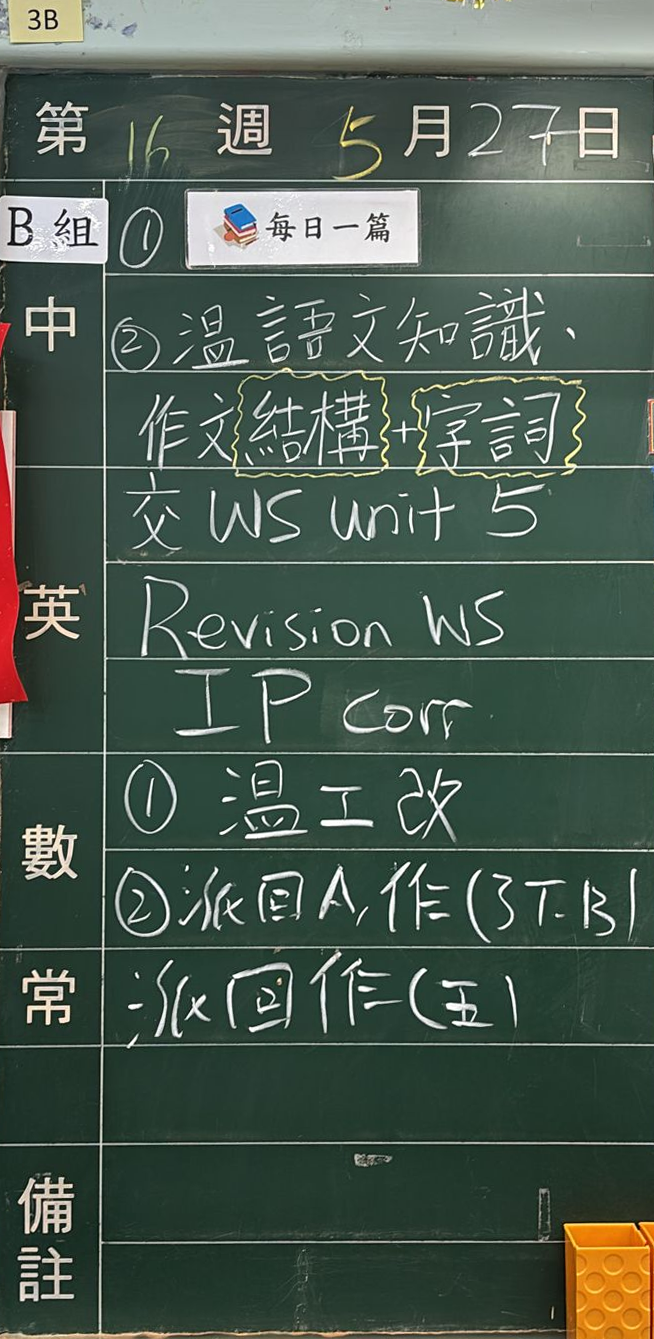 3B
第 16 週 5 月 27 日
B 組 ① 每日一篇
中 ② 溫語文知識、
作文結構+字詞
交 WS unit 5
英 Revision WS
IP corr
數 ① 溫工改
② 派回A, 作(3下B)
常 派回作(五)
備註